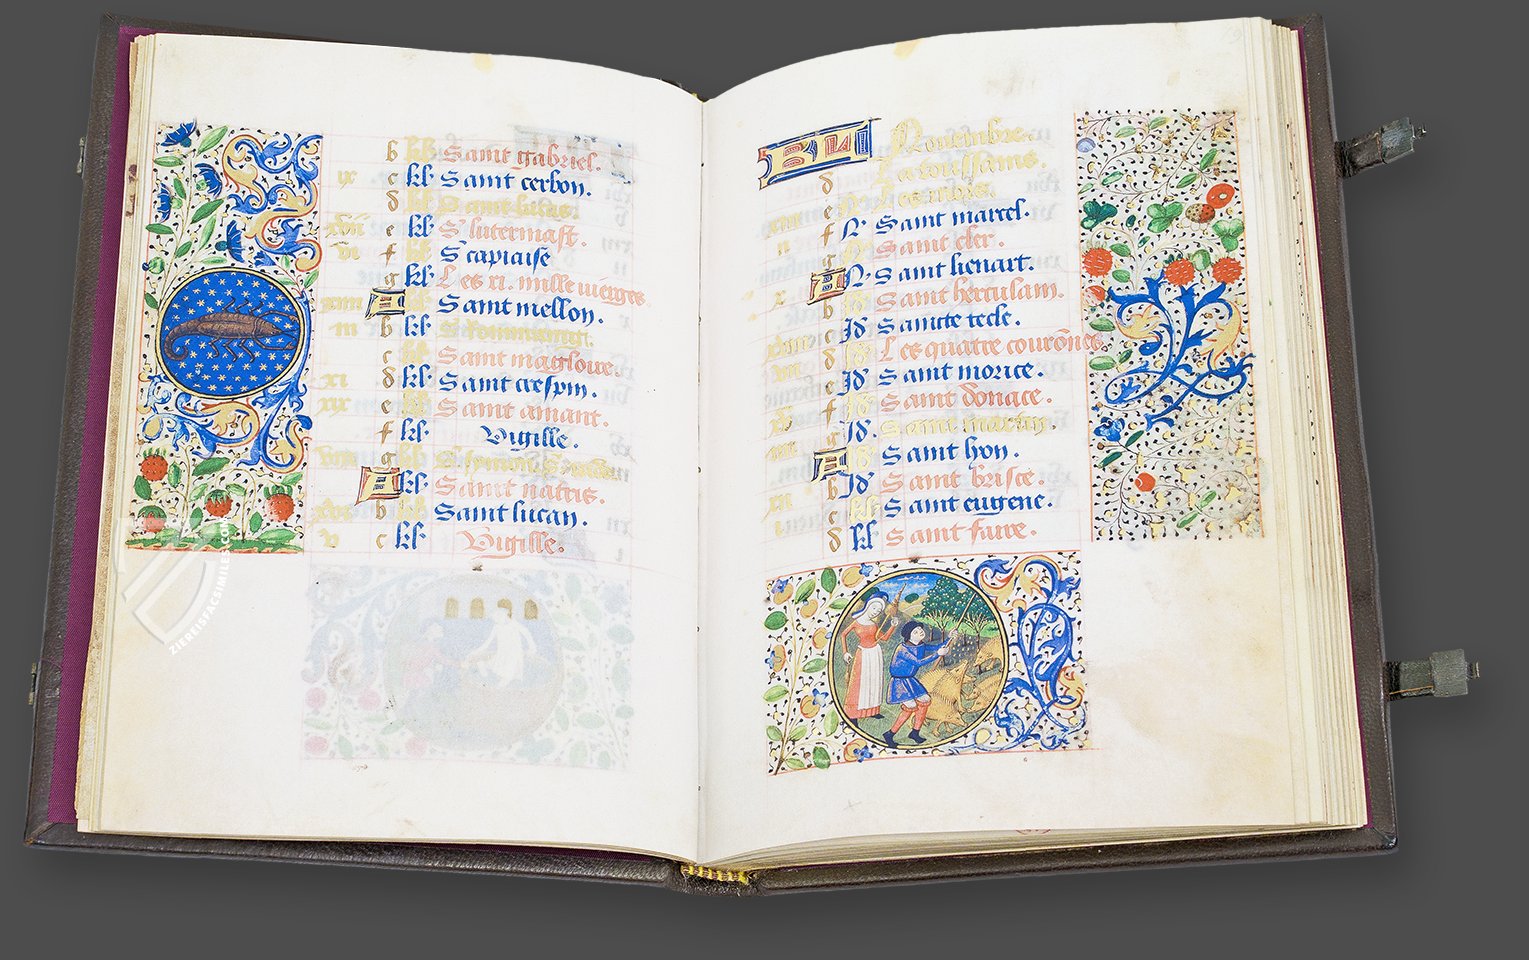 b kl Saint gabriel.
ix c kl Saint cerbon.
d kl Saint lucas.
xvii e kl S' lutermast.
vi f kl S' capiaise
g kl Les xi. mille vierges.
xiiii A kl Saint mellon.
iii b kl S' rommaing.
c kl Saint magloire.
xi d kl Saint crespin.
xix e kl Saint amant.
f kl Vigille.
viii g kl S' symon S'
A kl Saint natris.
xvi b kl Saint lucan.
v c kl Vigille.
KL Nouembre.
d La toussains.
e Les mors.
f N Saint marcel.
g Saint cler.
x A N Saint lienart.
b Saint herculain.
c Id Saincte tecle.
d Id Les quatre couronēs
e Id Saint morice.
f Id Saint donace.
g Id Saint martin.
A Id Saint lyon.
b Id Saint brisce.
c kl Saint eugene.
d kl Saint faire.
ZIEREISFACSIMILES.COM